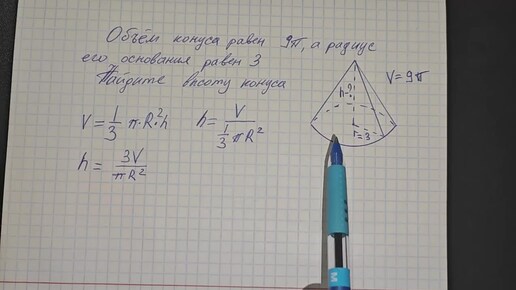 Объём конуса равен 9π, а радиус
его основания равен 3
Найдите высоту конуса
V = 1/3 π·R²·h
h = V / (1/3 πR²)
h = 3V / (πR²)
h-?
r=3
V = 9π
M